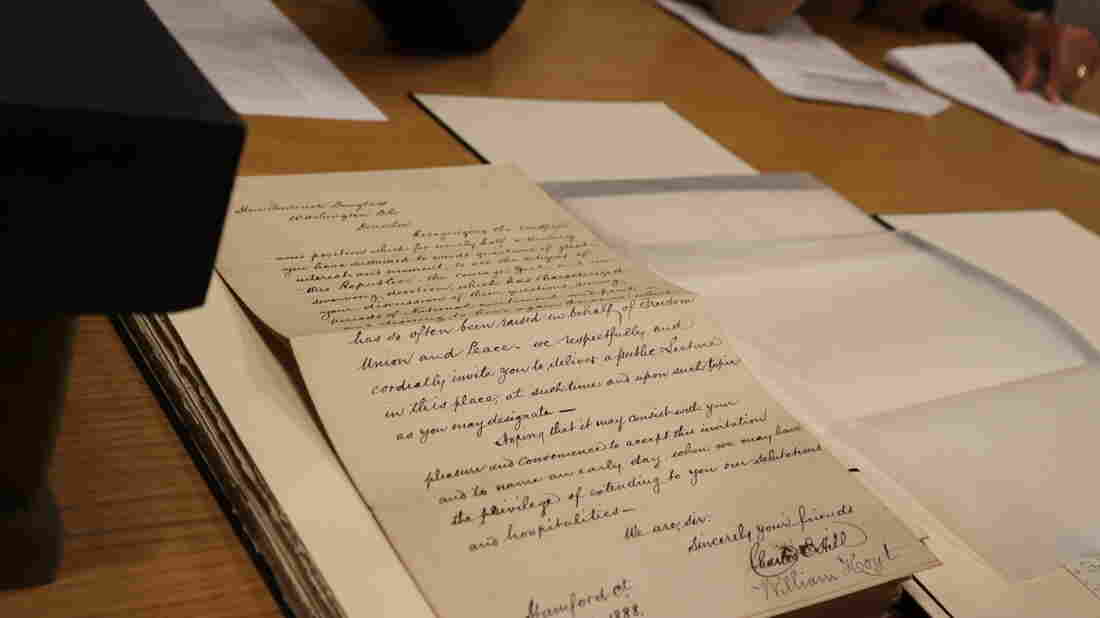 Hon Frederick Douglass
Washington D.C.
Recognizing the
position which for nearly half a century
you have
interests and moment, to
this Republic - the courage,
devotion, which has characterized
your discussions of these questions during
periods of national
has so often been raised in behalf of Freedom
Union and Peace - we respectfully and
cordially invite you to deliver a public Lecture
in this place, at such time and upon such topic
as you may designate —
Hoping that it may consist with your
pleasure and convenience to accept this invitation
and to name an early day when we may have
the privilege of extending to you our salutations
and hospitalities —
We are, sir:
Sincerely your friends
Charles E Hill
William Hoyt
Stamford Ct.
1888.